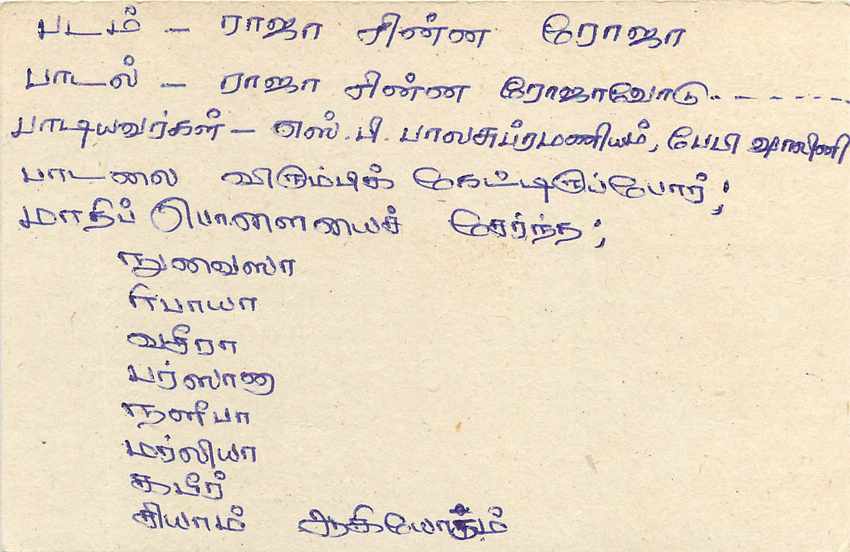 படம் - ராஜா சின்ன ரோஜா
பாடல் - ராஜா சின்ன ரோஜாவோடு.. - - - - - -
பாடியவர்கள் - எஸ். பி. பாலசுப்ரமணியம், பேபி ஷாலினி
பாடலை விரும்பிக் கேட்டிருப்போர்;
மாதிப் பொளையைச் சேர்ந்த;
நுவைஸா
ரிபாயா
வசீரா
பர்ஸானு
நளீபா
மர்லியா
கபீர்
சியாம் ஆகியோரும்